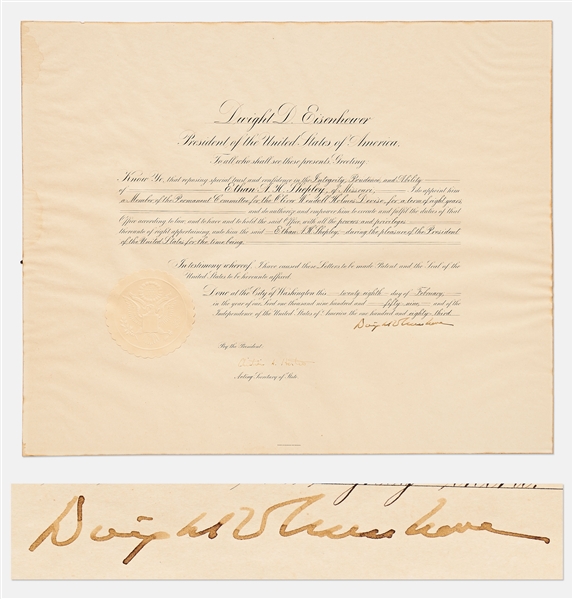 Dwight D. Eisenhower
President of the United States of America.
To all who shall see these presents, Greeting:
Know Ye, that reposing special trust and confidence in the Integrity, Prudence, and Ability
of Ethan A. H. Shepley, of Missouri, I do appoint him
a Member of the Permanent Committee for the Oliver Wendell Holmes Devise, for a term of eight years,
and do authorize and empower him to execute and fulfil the duties of that
Office according to law, and to have and to hold the said Office, with all the powers and privileges
thereunto of right appertaining, unto him the said Ethan A. H. Shepley, during the pleasure of the President
of the United States for the time being.
In testimony whereof, I have caused these Letters to be made Patent and the Seal of the
United States to be hereunto affixed.
Done at the City of Washington this twenty-eighth day of February,
in the year of our Lord one thousand nine hundred and fifty-nine, and of the
Independence of the United States of America the one hundred and eighty-third.
Dwight D Eisenhower
By the President:
Acting Secretary of State.
Dwight D Eisenhower